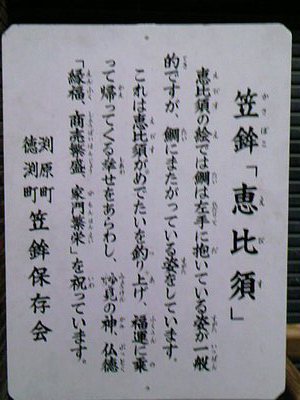 笠鉾「恵比須」
恵比須の絵では鯛は左手に抱いている姿が一般
的ですが、鯛にまたがっている姿をしています。
これは恵比須がめでたいを釣り上げ、福運に乗
って帰ってくる幸せをあらわし、妙見の神、仏徳
「縁福、商売繁盛、家門繁栄」を祝っています。
渕原町
徳渕町
笠鉾保存会